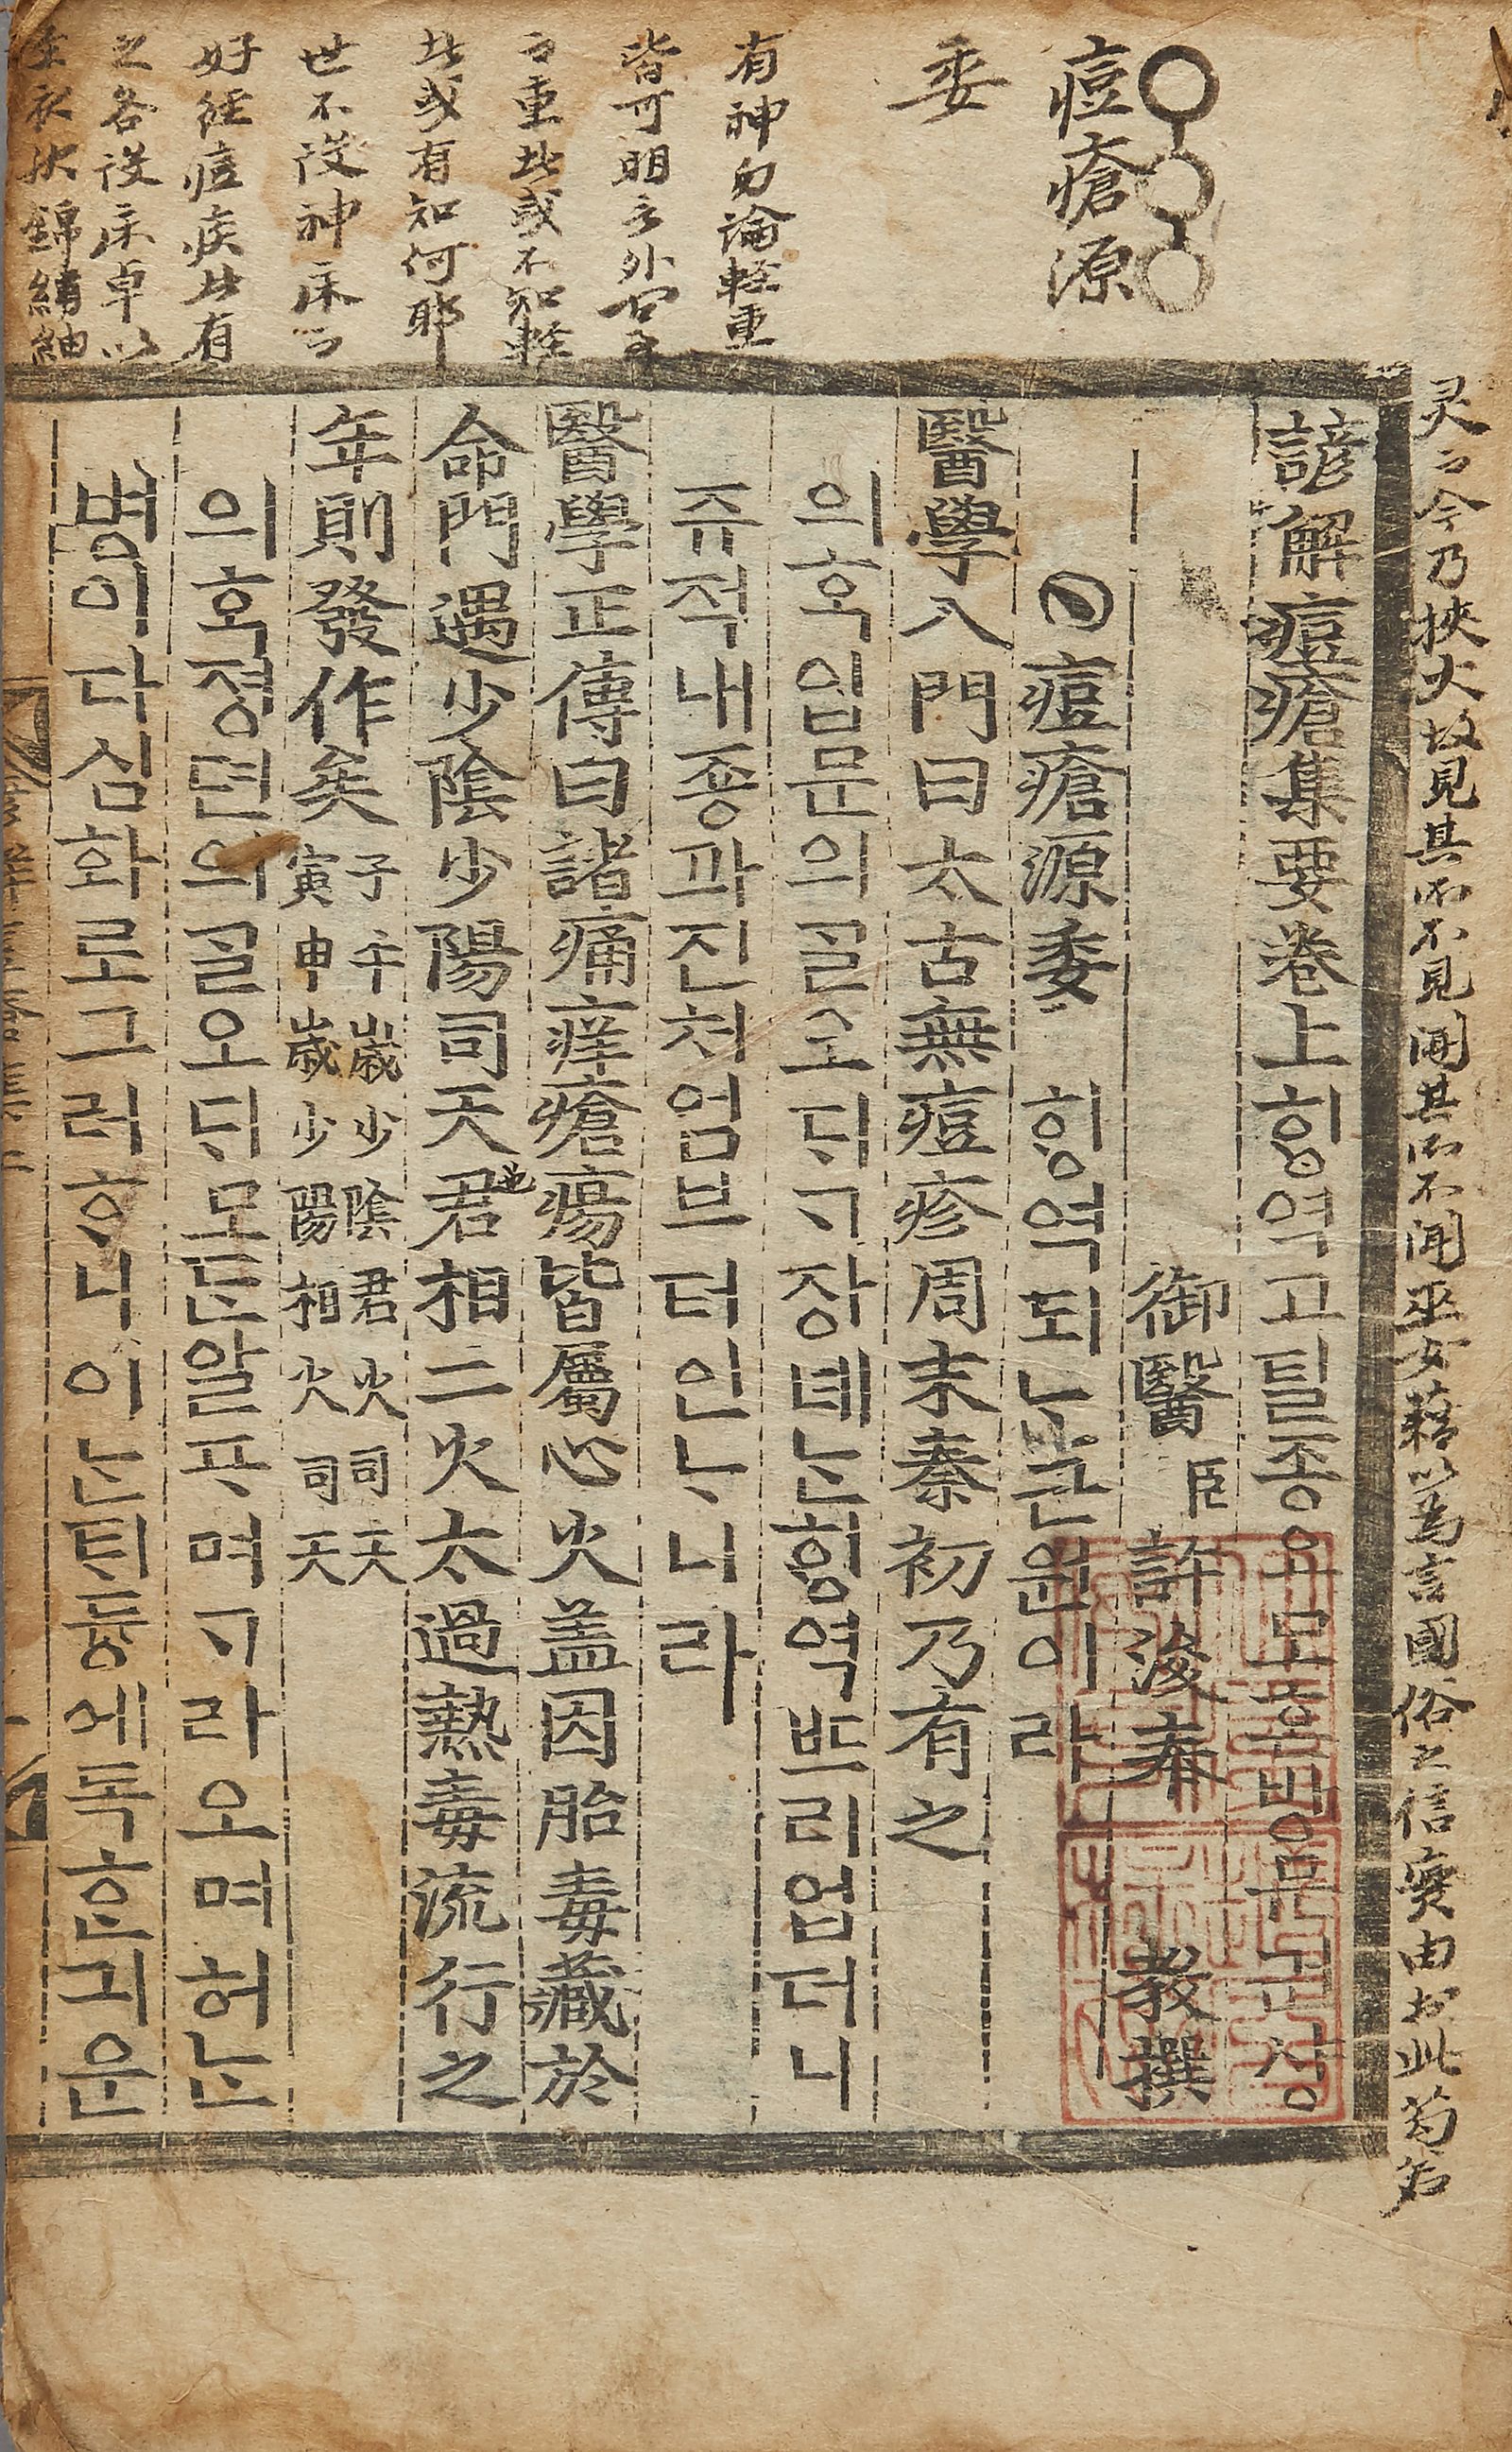 灵云今乃挾火故見其所不見聞其所不聞巫女藉以爲言國俗之信實由於此
痘瘡源
委
有神勿論輕重
皆可明言外
云重此或不知輕
此或有知何耶
世不設神床云
好經痘疾此有
之各設床卓以
衣於錦綃紬
諺解痘瘡集要卷上힝역고틸종요모흔방문권상
御醫臣許浚奉 教撰
痘瘡源委 힝역되ᄂᆞᆫ근원이라
醫學入門曰太古無痘疹周末秦初乃有之
의혹입문의ᄀᆞᆯ오ᄃᆡᄀᆞ장녜ᄂᆞᆫ힝역ᄠᅳ리업더니
쥬적내죵과진처엄브터인ᄂᆞ니라
醫學正傳曰諸痛痒瘡瘍皆屬心火盖因胎毒藏於
命門遇少陰少陽司天君相二火也太過熱毒流行之
年則發作矣 子午歲少陰君火司天 寅申歲少陽相火司天
의혹졍뎐의ᄀᆞᆯ오ᄃᆡ모ᄃᆞᆫ알ᄑᆞ며ᄀᆞ라오며허ᄂᆞᆫ
병이다심화로그러ᄒᆞ니이ᄂᆞᆫᄐᆡ듕에독ᄒᆞᆫ긔운